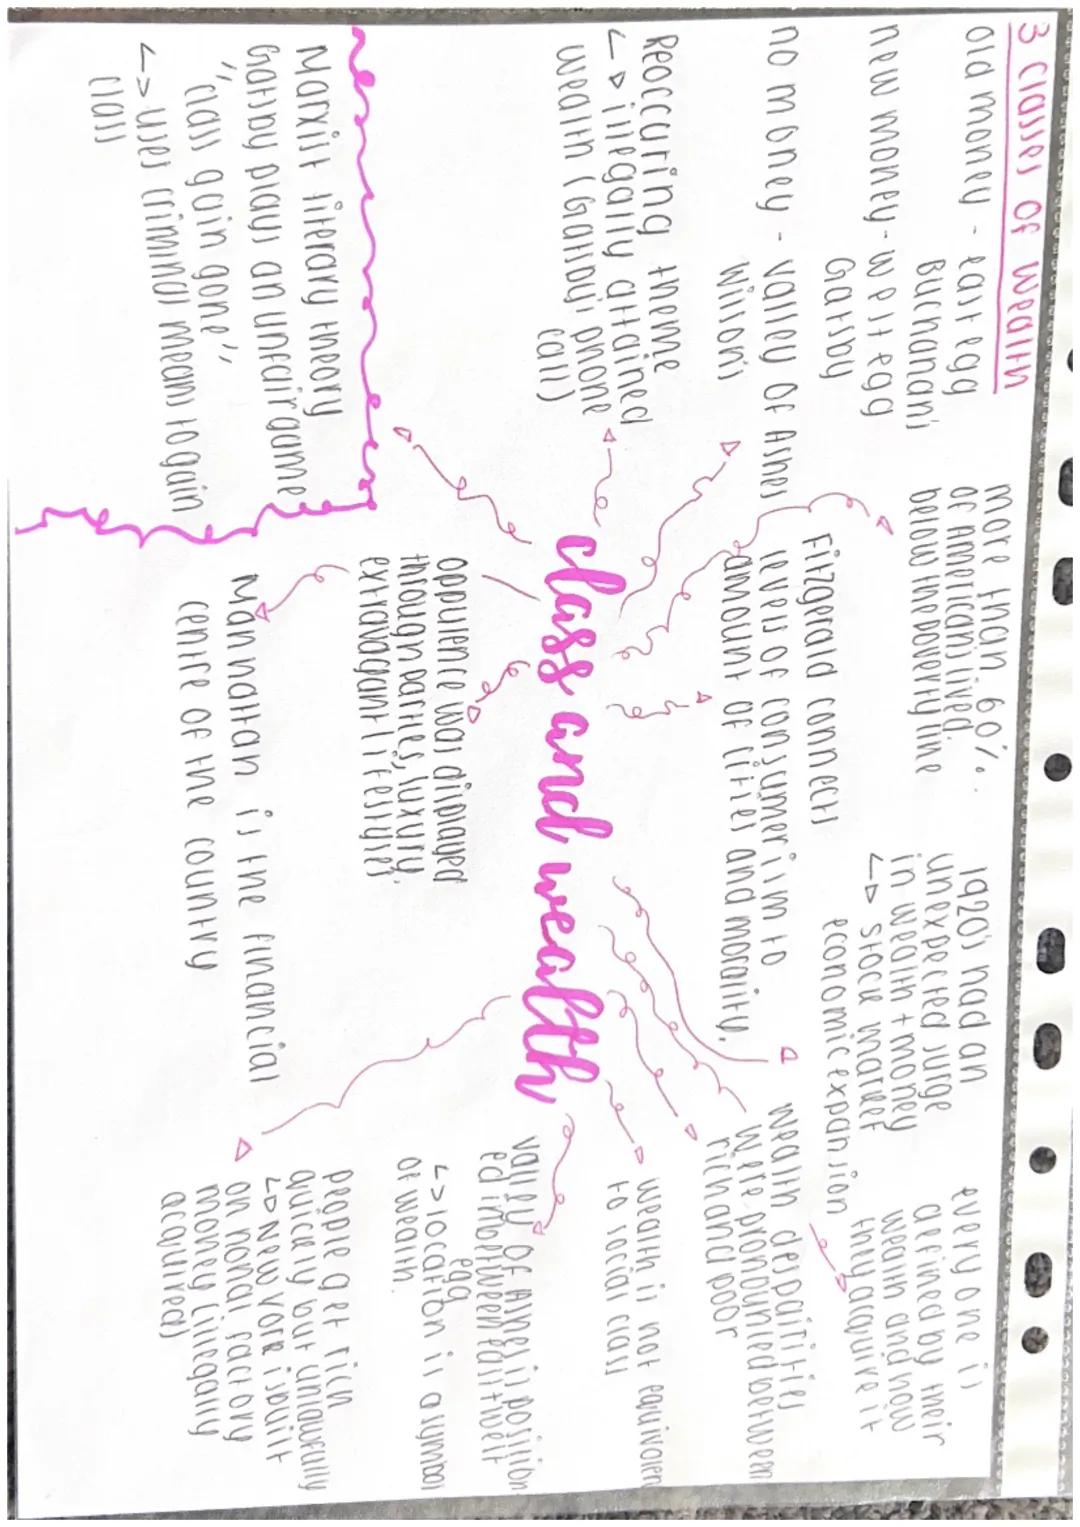 3 classes of wealth
old money - east egg
Buchanan's
new money - west egg
Gatsby
no money - valley of Ashes
Wilson's
more than 60%
of Americans lived
below the poverty line
1920's had an
unexpected surge
in wealth + money
↳ stock market
economic expansion
every one is
defined by their
wealth and how
they acquire it
Reoccuring theme
↳ illegally attained
wealth (Gatsby's phone
call)
Fitzgerald connects
levels of consumerism to
amount of cities and morality.
wealth despairities
were pronounied between
rich and poor
wealth is not equivalen
to social class
class and wealth
Marxist literary theory
Gatsby plays an unfair game
"class gain gone"
↳ uses criminal means to gain
class
oppulence was displayed
through parties, luxury,
extravagant lifestyles.
Manhattan is the financial
centre of the country
valley of Ashes is position
ed inbetween east + west
egg
↳ location is a symbol
of wealth.
people get rich
quickly but unlawfully
↳ New York is built
on
money (illegally
acquired)